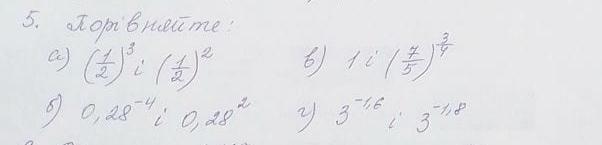 5. Порівняйте:
а) (1/2)³ і (1/2)²
в) 1 і (7/5)^(3/4)
б) 0,28⁻⁴ і 0,28²
г) 3^(-1,6) і 3^(-1,8)